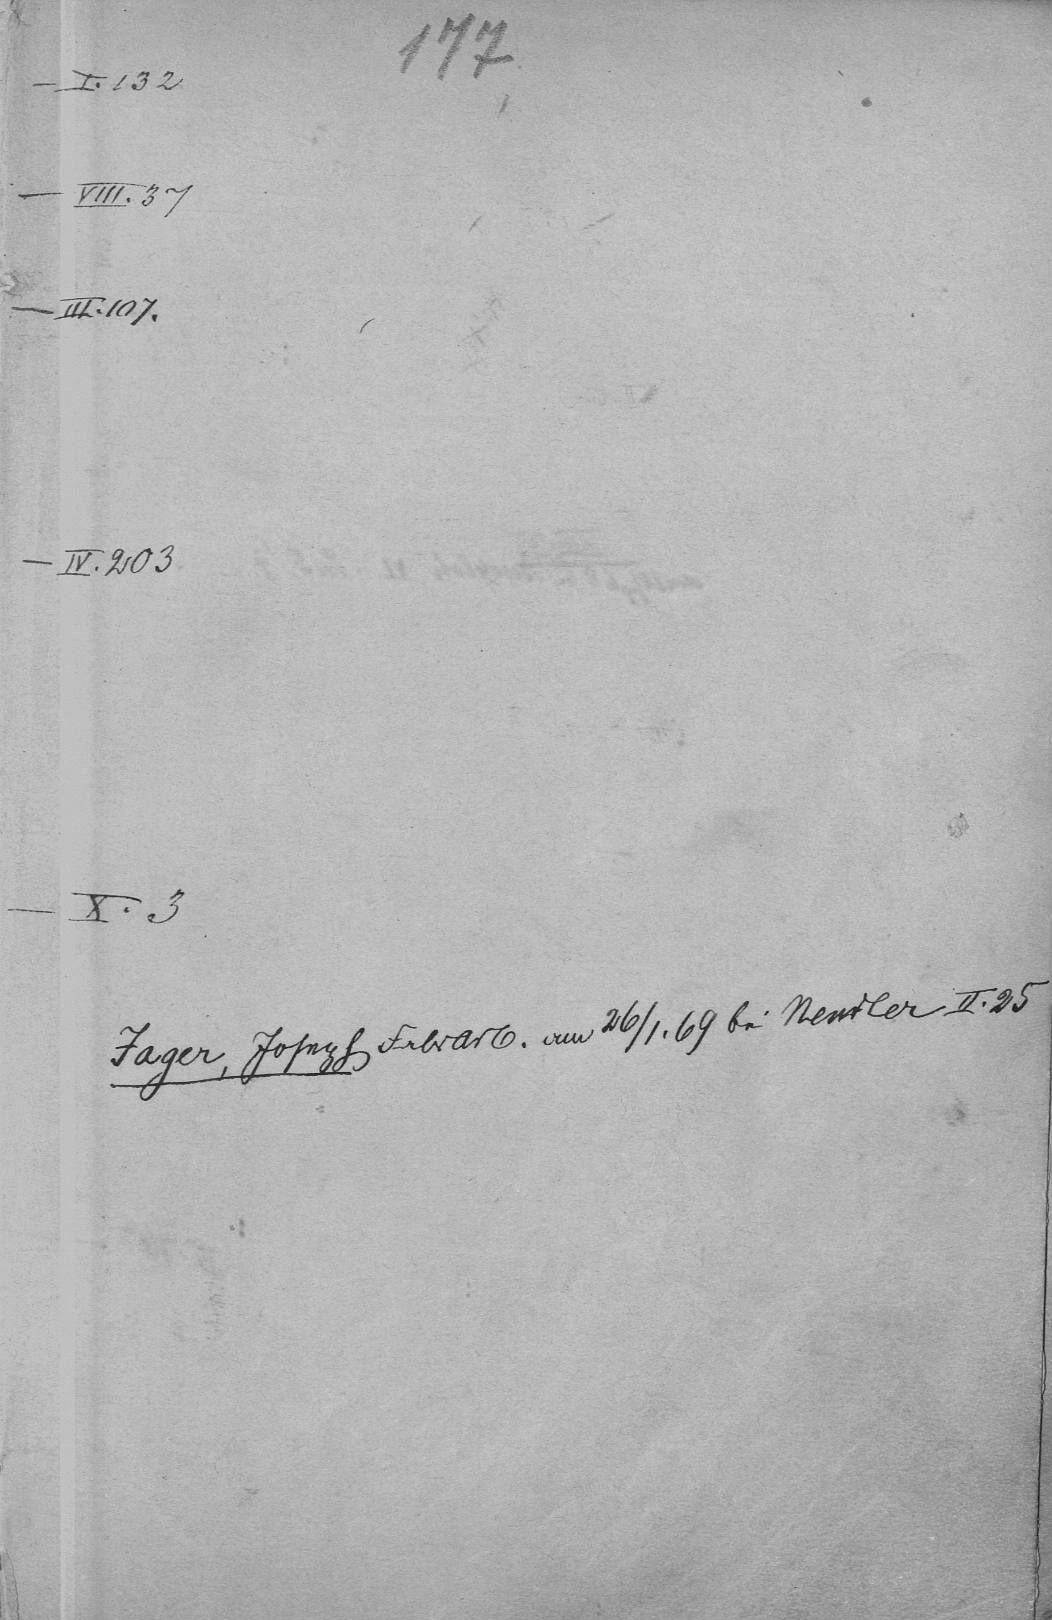 177
— I. 132
— VIII. 37
— III. 107.
— IV. 203
— X. 3
Jager, Joseph Fabrarb. am 26/1. 69 bei Nendler II. 25